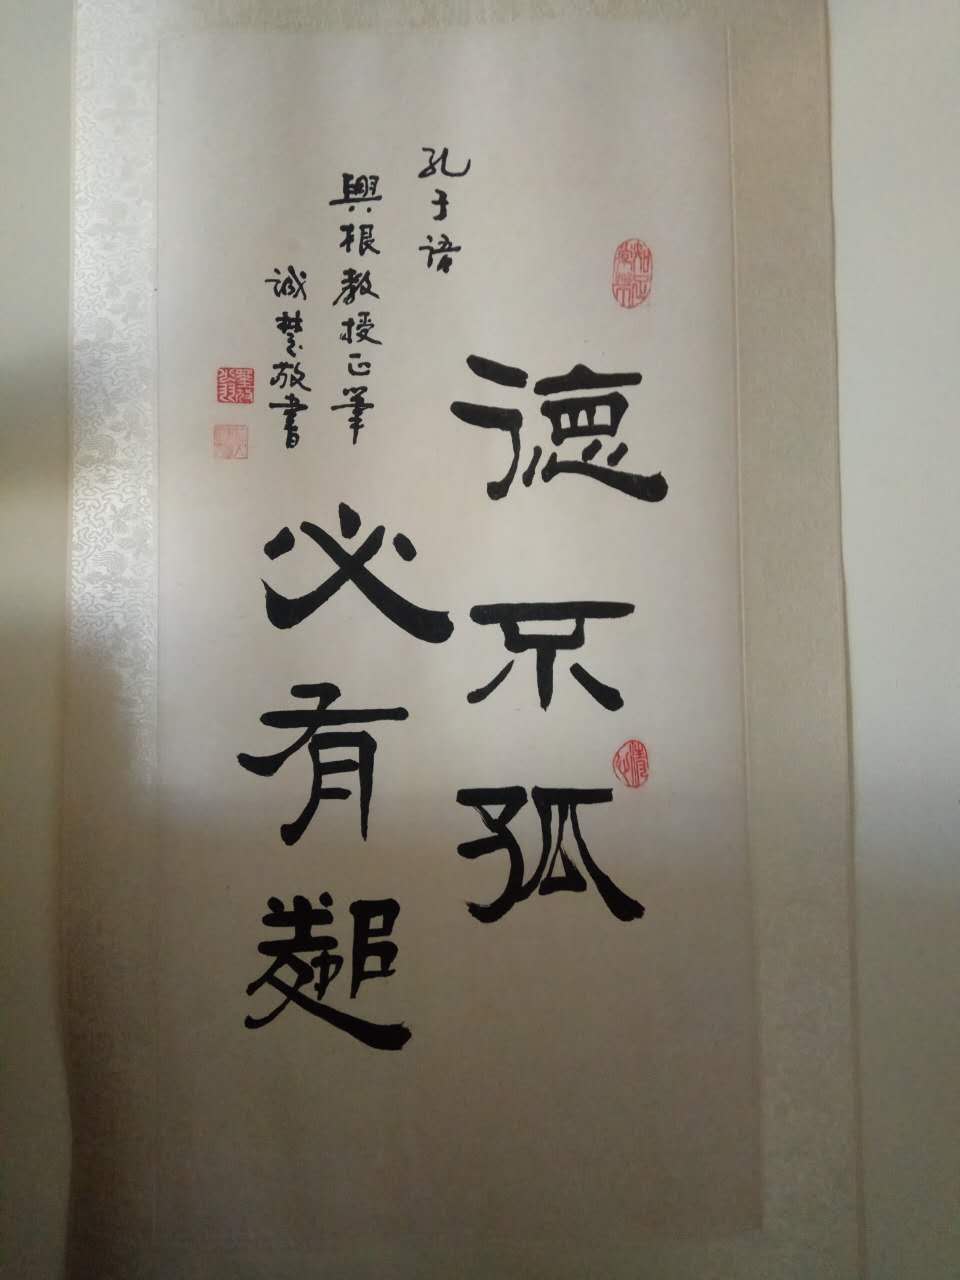 德不孤
必有鄰
孔子語
興根教授正筆
誠楚敬書